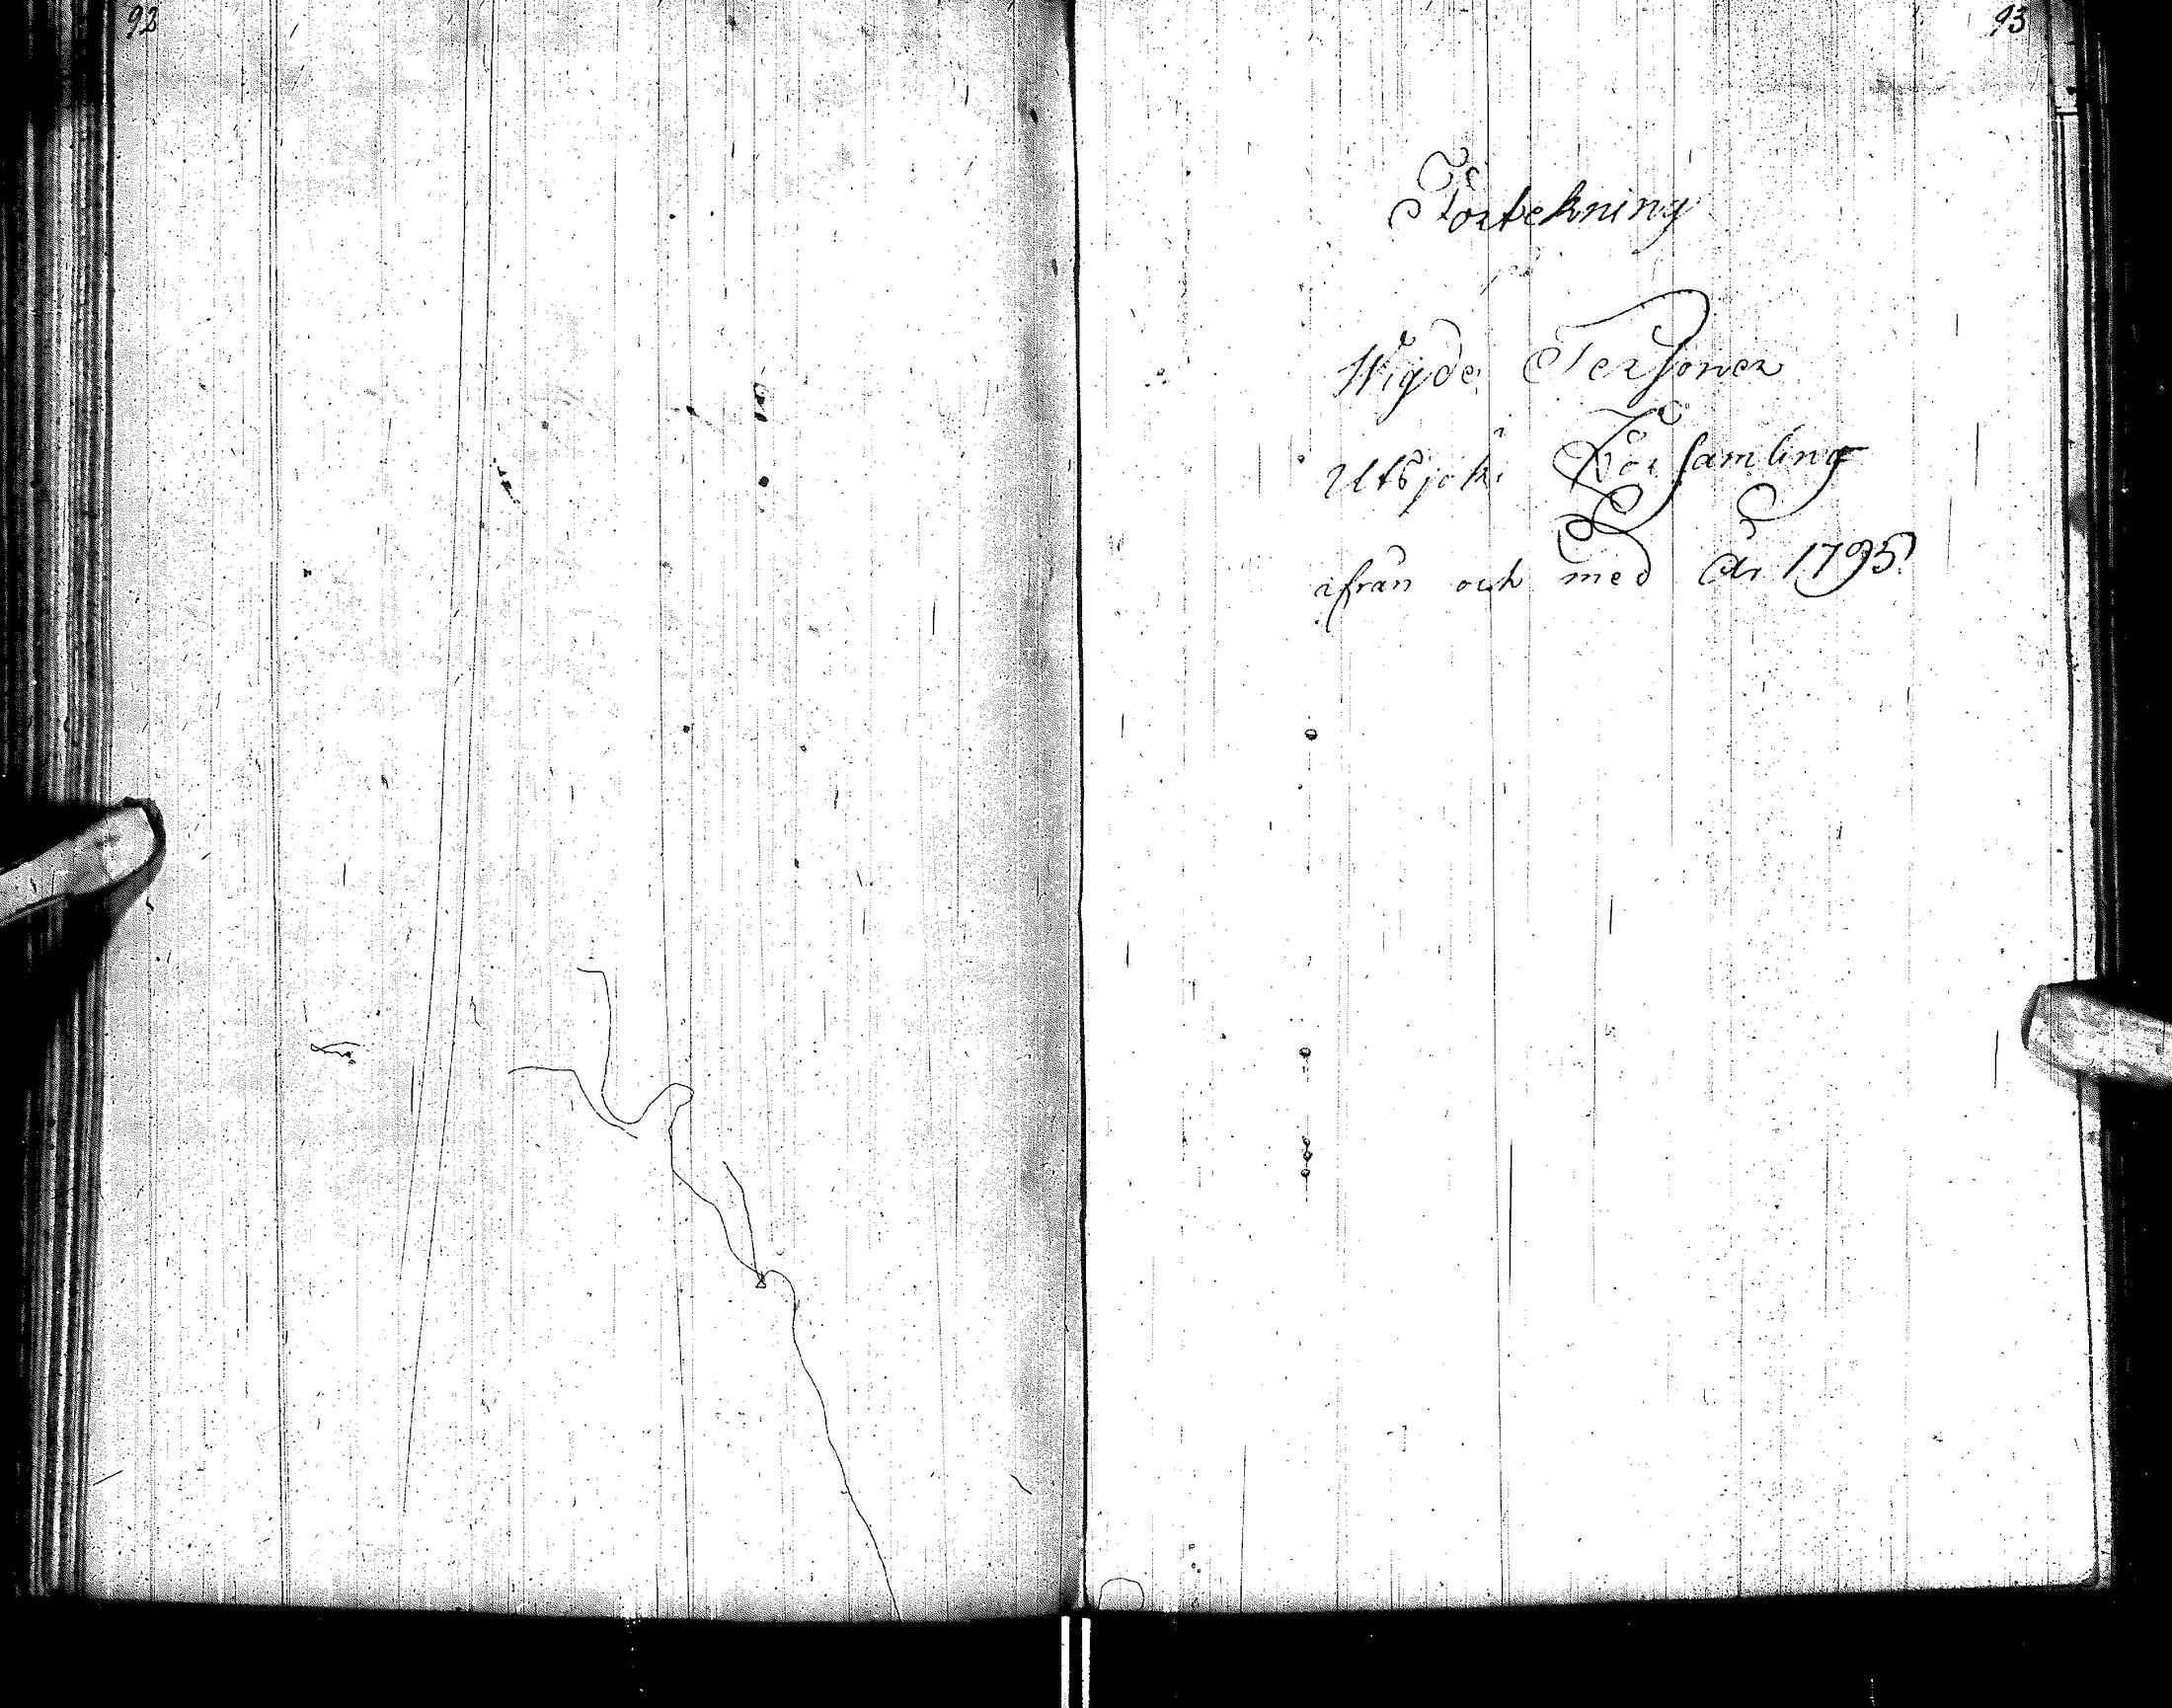 92
93
Förtekning
på
Wigde Personer
i
Utsjoki Församling
ifrån och med år 1795.